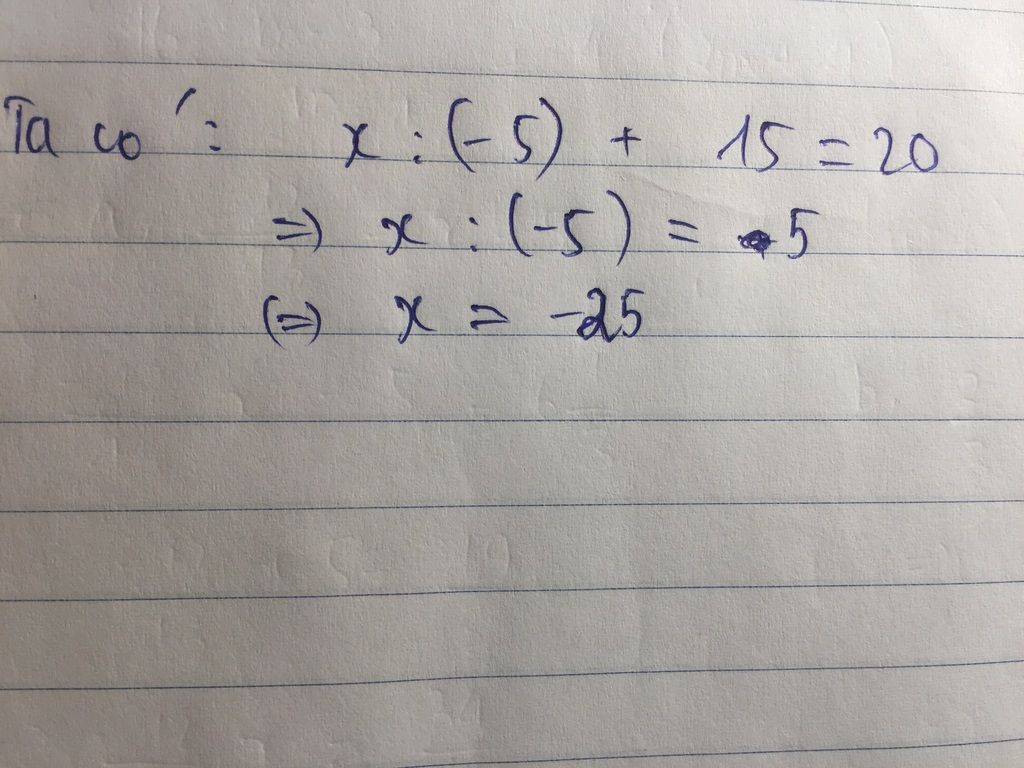 Ta có: x : (-5) + 15 = 20
=> x : (-5) = 5
(=) x = -25